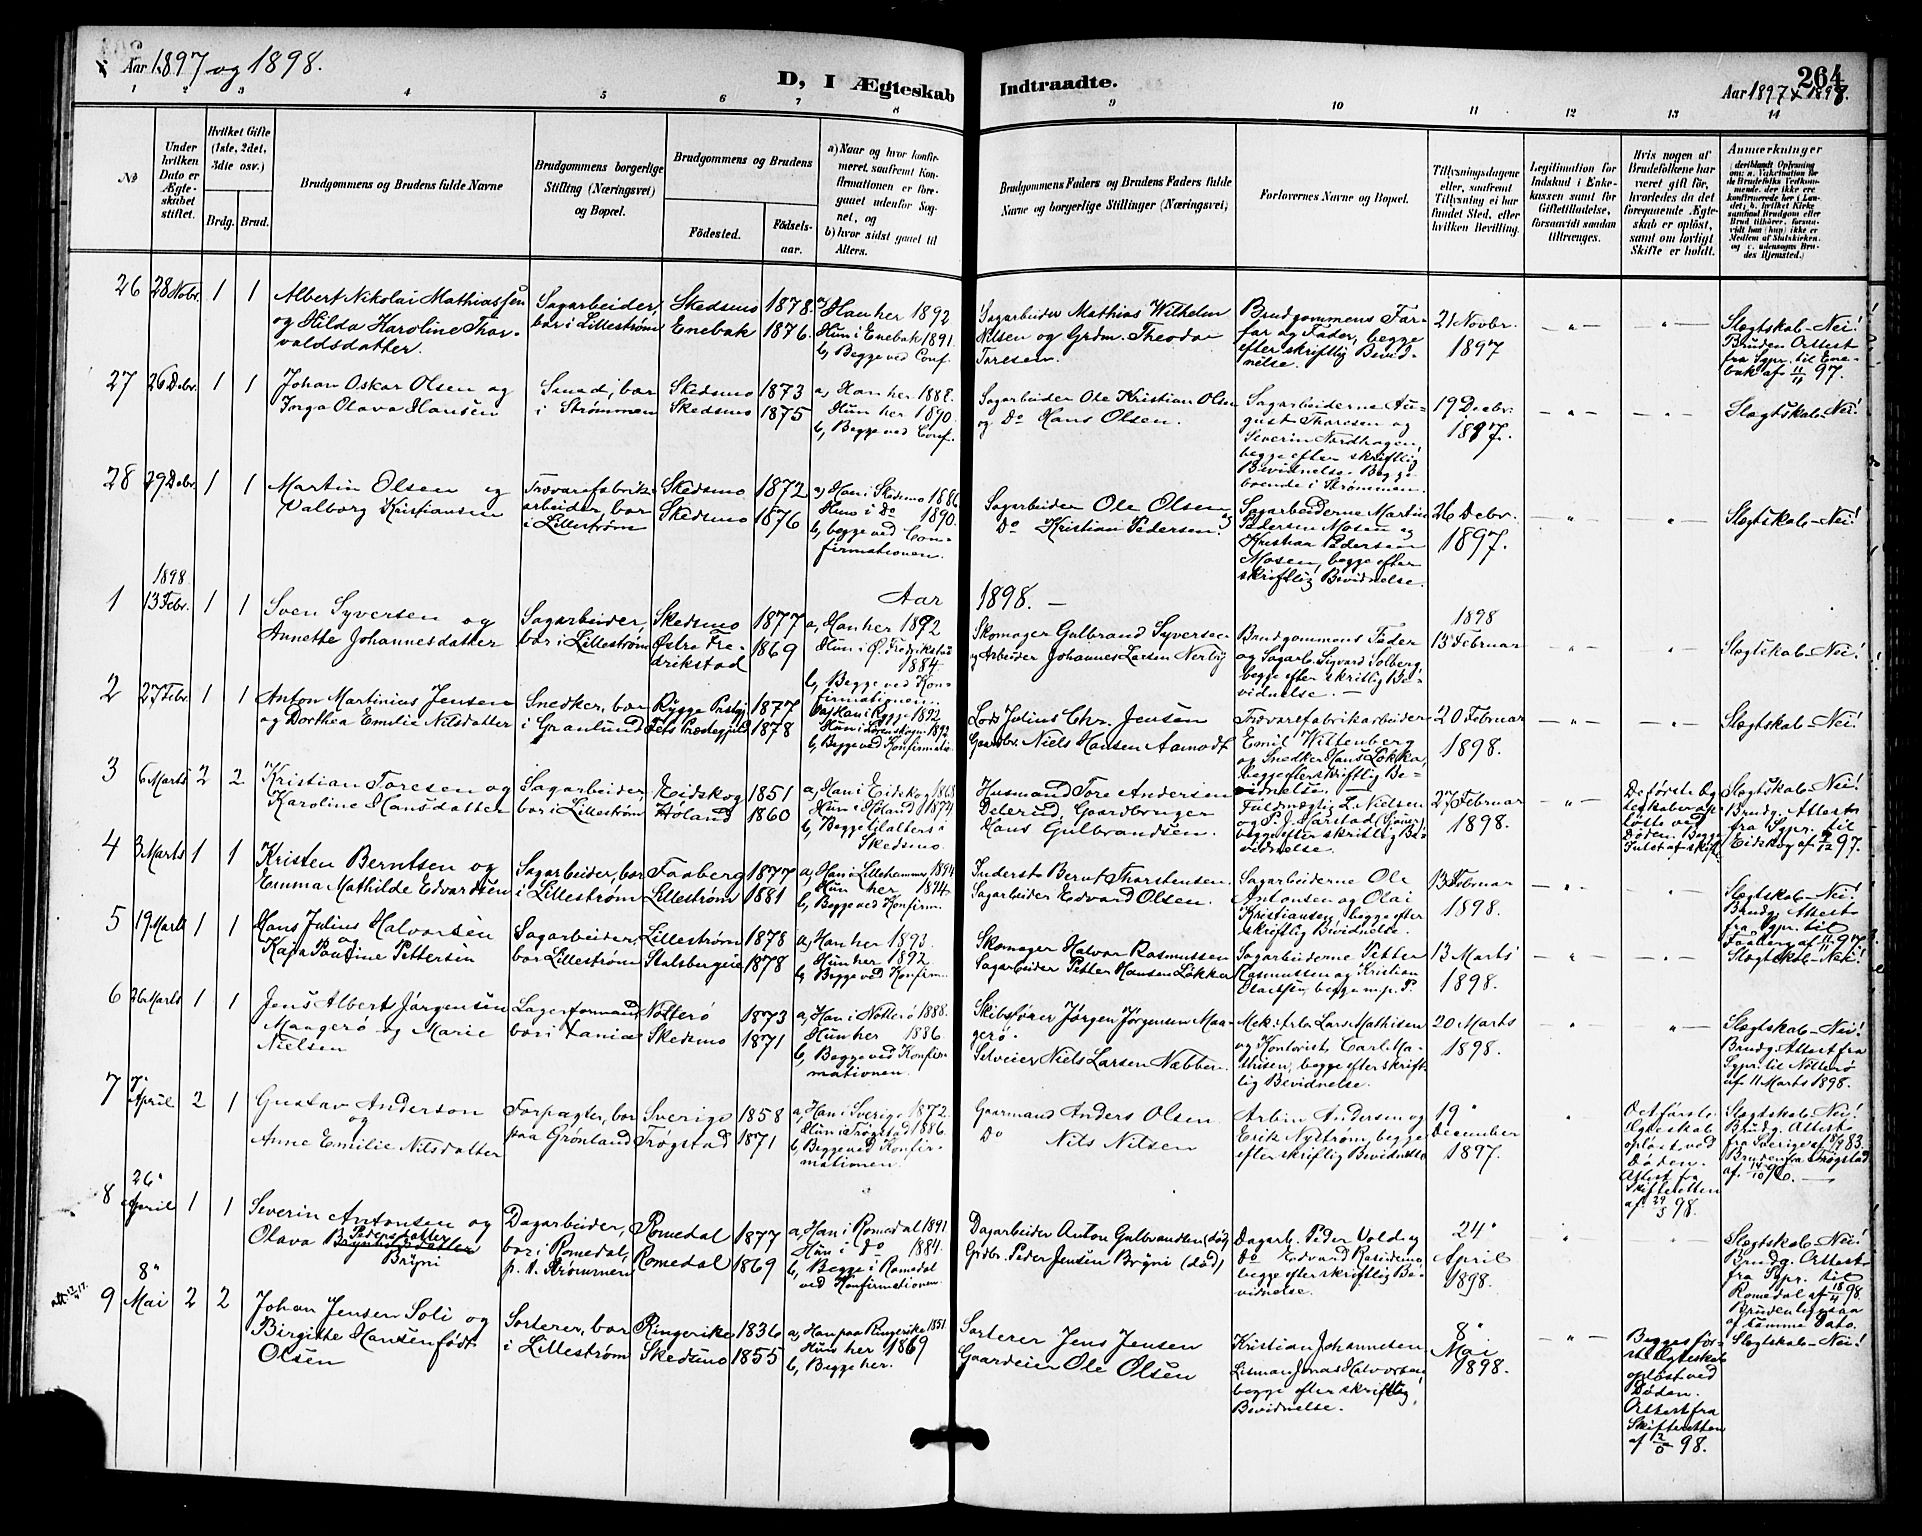 Aar 1897 og 1898.
D, I Ægteskab
Indtraadte.
264
Aar 1897 & 1898.
1 2 3 4 5 6 7 8 9 10 11 12 13 14
No
Under hvilken Dato er Ægteskabet stiftet.
Hvilket Gifte (1ste, 2det, 3die osv.)
Brdg. Brud.
Brudgommens og Brudens fulde Navne
Brudgommens borgerlige Stilling (Næringsvei) og Bopæl.
Brudgommens og Brudens
Fødested.
Fødselsaar.
a) Naar og hvor konfirmeret, saafremt Konfirmationen er foregaaet udenfor Sognet, og
b) hvor sidst gaaet til Alters.
Brudgommens Faders og Brudens Faders fulde Navne og borgerlige Stillinger (Næringsvei)
Forlovernes Navne og Bopæl.
Tillysningsdagene eller, saafremt Tillysning ei har fundet Sted, efter hvilken Bevilling.
Legitimation for Indskud i Enkekassen samt for Giftetilladelse, forsaavidt saadan tiltrænges.
Hvis nogen af Brudefolkene har været gift før, hvorledes da det foregaaende Ægteskab er opløst, samt om lovligt Skifte er holdt.
Anmerkninger
26 28 Nobr. 1 1
Albert Nikolai Mathiassen
og Hilda Karoline Thorvaldsdatter.
Sagarbeider, bor i Lillestrøm
Skedsmo 1878.
Enebak 1876.
a, Han her 1892
Hun i Enebak 1891.
b, Begge ved Conf.
Sagarbeider Mathias Wilhelm
Nilsen og Grdm. Theodor
Toresen.
Brudgommens Farfar og Fader, begge
efter skriftlig Bevidnelse.
21 Novbr. 1897
Slægtskab – Nei!
Bruden Attest
fra Sgpr. til Enebak af 11/11 97.
27 26 Debr. 1 1
Johan Oskar Olsen og
Inga Olava Hansen
Smed, bor i Strømmen
Skedsmo 1873
Skedsmo 1875
a, Han her 1888.
Hun her 1890.
b, Begge ved Conf.
Sagarbeider Ole Kristian Olsen
og Do Hans Olsen.
Sagarbeiderne August Thoresen og
Severin Nordhagen,
begge efter skriftlig
Bevidnelse. Begge
boende i Strømmen.
19 Debr. 1897.
Slægtskab – Nei!
28 29 Debr. 1 1
Martin Olsen og
Valborg Kristiansen
Trævarefabrikarbeider, bor
i Lillestrøm
Skedsmo 1872
Skedsmo 1876
a, Han i Skedsmo 1886
Hun i Do 1890.
b, begge ved Confirmationen.
Sagarbeider Ole Olsen og
Do Kristian Pedersen.
Sagarbeiderne Martin
Pedersen Mosen og
Kristian Pedersen
Mosen, begge efter
skriftlig Bevidnelse.
26 Debr. 1897.
Slægtskab – Nei!
Aar 1898. –
1 1898 13 Febr. 1 1
Sven Syversen og
Annette Johannesdatter
Sagarbeider, bor i Lillestrøm
Skedsmo 1877
Østre Fredrikstad 1869
a, Han her 1892
Hun i Ø. Fredrikstad
1884.
b, Begge ved Konfirmationen.
Skomager Gulbrand Syversen
og Arbeider Johannes Larsen Nerby
Brudgommens Fader
og Sagarb. Sigvard Solberg,
begge efter skriftlig Bevidnelse. –
1898 13 Februar
Slægtskab – Nei!
2 27 Febr. 1 1
Anton Martinius Jensen
og Dorthea Emilie Nilsdatter
Snedker, bor i Granlund
Rygge Prstgj. 1877
Fets Præstegjeld 1878
a, Han i Rygge 1892
Hun i Lørenskogen 1892
b, Begge ved Konfirmatio.
Lods Julius Chr. Jensen
Gaardbr. Niels Hansen Aamodt
Trævarefabrikarbeider
Emil Wittenberg
og Snedker Hans Løkka,
begge efter skriftlig Bevidnelse. –
20 Februar 1898.
Slægtskab – Nei!
3 6 Marts 2 2
Kristian Toresen og
Karoline Hansdatter
Sagarbeider, bor i Lillestrøm
Eidskog 1851
Høland 1860
a, Han i Eidskog 1868
Hun i Høland 1874
b, Begge til alters i
Skedsmo.
Husmand Tore Andersen
Gaardbruger
Hans Gulbrandsen.
Fuldmægtig L. Nielsen
begge efter skriftlig Bevidnelse.
27 Februar 1898.
De første Ægteskaber opløste ved
Døden. Begge
Slægtskab – Nei!
Brudg. Attest
fra Sgpr. til
Eidskog af 97.
4 3 Marts 1 1
Kristen Berntsen og
Emma Mathilde Edvardsen
Sagarbeider, bor i Lillestrøm
Faaberg 1877
Lillestrøm 1881
a, Han i Lillehammer 1894
Hun her 1894.
b, Begge ved Konfirm.
Inderst Bernt Thorstensen.
Sagarbeider Edvard Olsen.
Sagarbeiderne Ole
Antonsen og Olai
Kristiansen, begge efter
skriftlig Bevidnelse.
13 Februar 1898.
Slægtskab – Nei!
Brudg. Attest
fra Sgpr. til
Faaberg af 97.
5 19 Marts 1 1
Hans Julius Halvorsen
og
Kaja Pauline Pettersen
Sagarbeider, bor Lillestrøm
Lillestrøm 1878
Stalsbergeie 1878
a, Han her 1893.
Hun her 1892
b, Begge ved Konfirm.
Skomager Halvor Rasmussen
Sagarbeider Petter Hansen Løkken
Sagarbeiderne Petter
Rasmussen og Kristian
Olausen, begge m. p. P.
13 Marts 1898.
Slægtskab – Nei!
6 26 Marts 1 1
Jens Albert Jørgensen
Maagerø og Marie
Nielsen
Lagerformand bor i
Nøtterø 1873
Skedsmo 1871
a, Han i Nøtterø 1888.
Hun her 1886
b, Begge ved Konfirmationen.
Skibsfører Jørgen Jørgensen Maagerø.
Selveier Niels Larsen Næbben.
Mek. Arb. Lars Mathisen
og Kontorist Carl Mathisen, begge efter skriftlig Bevidnelse.
20 Marts 1898.
Slægtskab – Nei!
Brudg. Attest fra
Sgpr. til Nøtterø
af 11 Marts 1898.
7 7" April 2 1
Gustav Anderson
og
Anne Emilie Nilsdatter
Forpagter, bor paa Grønland
Sverige 1858
Trøgstad 1871
a, Han i Sverige 1872.
Hun i Trøgstad 1886.
b, Begge ved Konfirmationen.
Gaarmand Anders Olsen.
Do Nils Nilsen
Arbin Andersen og
Erik Nystrøm, begge
efter skriftlig Bevidnelse
19" December 1897.
Det første
Ægteskab
opløst ved
Døden.
Attest fra
Skifteretten
af 29/3 98.
Slægtskab – Nei!
Brudg. Attest
fra Sverige af 83.
Bruden fra Trøgstad
af 14/10 96. –
8 26" April 1 1
Severin Antonsen og
Olava Brynhildsdatter
Pedersdatter
Bryni
Dagarbeider, bor i Romedal,
p. t. Strømmen
Romedal 1877
Romedal 1869
a, Han i Romedal 1891
Hun i Do 1884.
b, Begge i Romedal
ved Konfirmationen.
Dagarbeider Anton Gulbrandsen (død)
Grdbr. Peder Jensen Bryni (død)
Dagarb. Peder Vold og
Do Edvard
begge efter skriftlig Bevidnelse.
24" April 1898.
Slægtskab – Nei!
Brudg. Attest
fra Sgpr. til
Romedal af 18/4 98.
Bruden ligesaa
af samme Dato.
9 8" Mai 2 2
Johan Jensen Soli og
Birgitte Hansen født
Olsen
Sorterer, bor i Lillestrøm
Ringerike 1836
Skedsmo 1855
a, Han paa Ringerike 1851
Hun her 1869
b, Begge her.
Sorterer Jens Jensen
Gaardeier Ole Olsen
Kristian Johannesen
Jonas Halvorsen,
begge efter skriftlig
Bevidnelse.
8" Mai 1898.
Begges første Ægteskab
opløst ved
Døden.
Attest fra
Skifteretten
af 98.
Slægtskab – Nei!